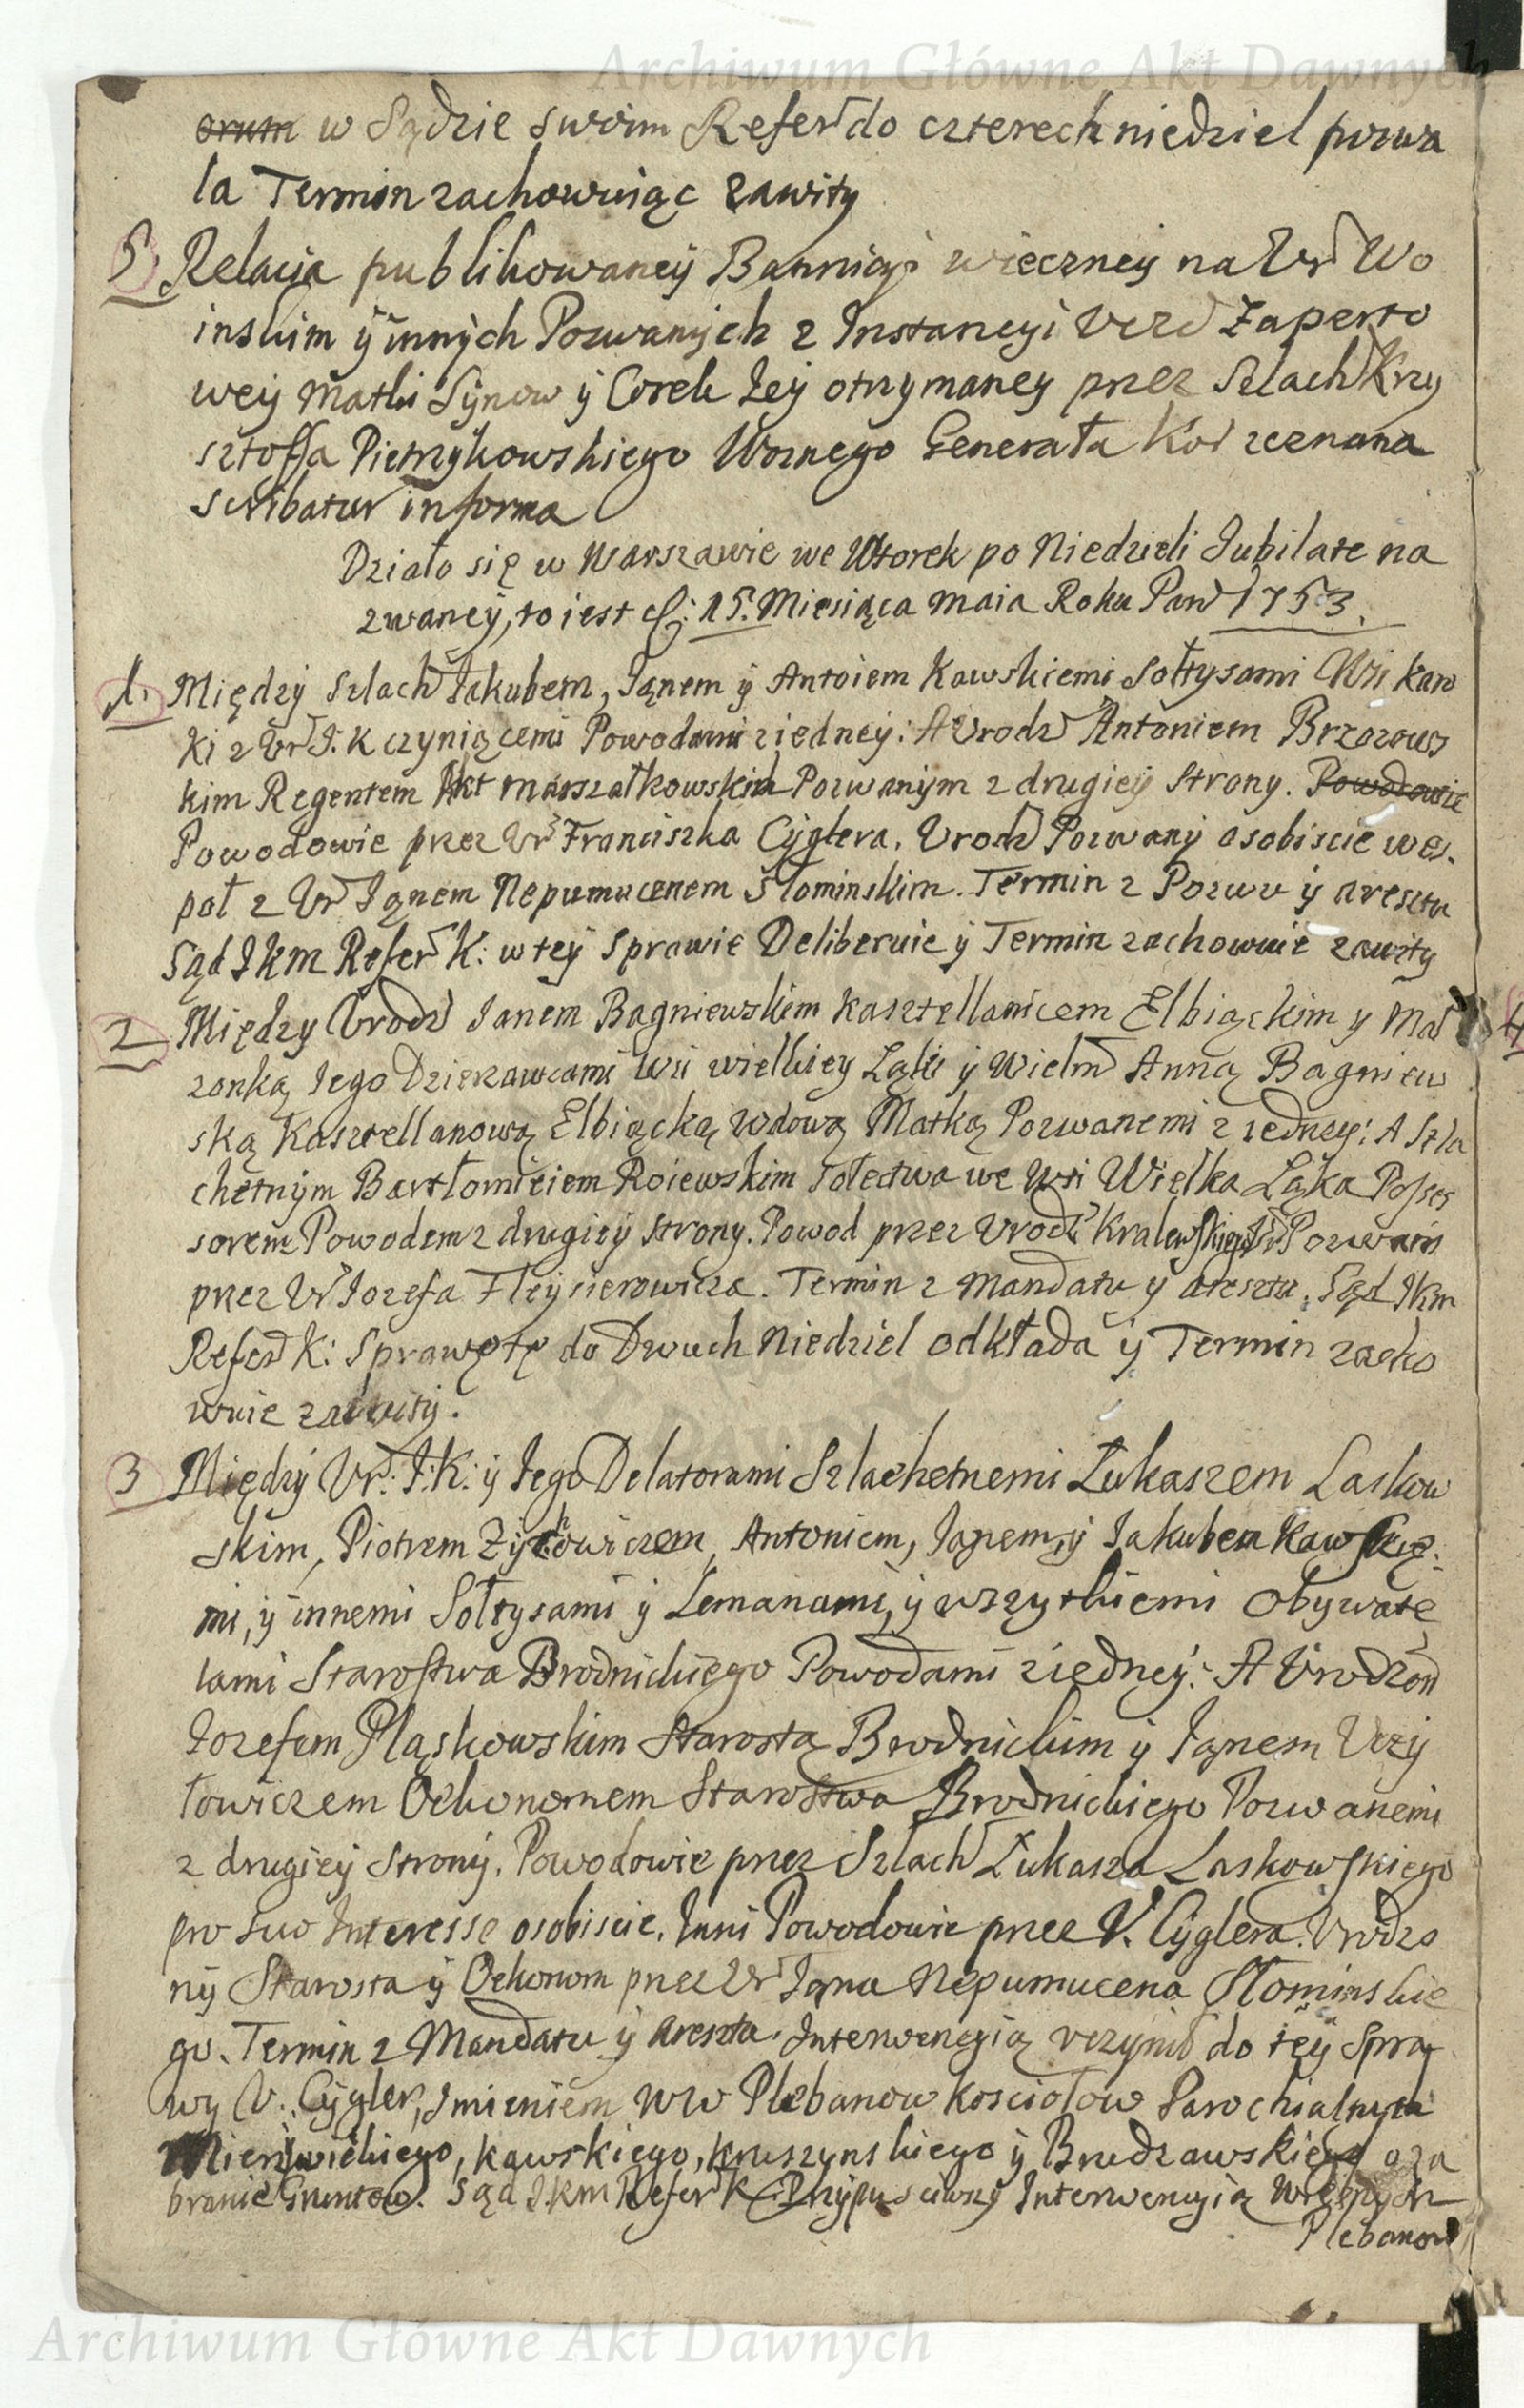 Archiwum Główne Akt Dawnych
orum w Sądzie swoim Refer do czterech niedziel pozwa
la Termin zachowuiąc zawity
5. Relacja publikowaney Bannicyi wieczney na Ur Wo
inskim y innych Pozwanych z Instancyi Urod Zaperto
wey Matki Synow y Corek Jey otrzymaney przez Szlach Krzy
sztoffa Pietrzykowskiego Woznego Generała Kor zeznana
scribatur in forma
Działo się w Warszawie we Wtorek po Niedzieli Jubilate na
zwaney, to iest d: 15. Miesiąca Maia Roku Pań 1753.
1. Między Szlach Jakubem, Janem y Antoiem Kawskiemi Sołtysami Wsi Kaw
ki z Ur J: K czyniącemi Powodami z iedney: A Urodz Antoniem Brzozows
kim Regentem Akt Marszałkowskich Pozwanym z drugiey Strony. Powodowie
Powodowie przez Ur Franciszka Cyglera, Urodz Pozwany osobiscie wes.
poł z Ur Janem Nepumucenem Słominskim. Termin z Pozwu y aresztu
Sąd Jkm Refer K: w tey Sprawie Deliberuie y Termin zachowuie zawity
2 Między Urodz Janem Bagniewskim Kasztellanicem Elbiąckim y Mał
zonką Jego Dzierzawcami Wsi wielkiey Łąki y Wielm Anną Bagniew
ską Kasztellanową Elbiącką Wdową Matką Pozwanemi z iedney: A Szla
chetnym Bartłomieiem Roiewskim Sołectwa we Wsi Wielka Łąka Posses
sorem Powodem z drugiey Strony. Powod przez Urodz Kralewskiego Pozwani
przez Ur Jozefa Fleynerowicza. Termin z Mandatu y aresztu. Sąd Jkm
Refer K: Sprawę tę do Dwuch Niedziel odkłada y Termin zacho
wuie zawity.
3 Między Ur: J: K: y Jego Delatorami Szlachetnemi Łukaszem Laskow
skim, Piotrem Antoniem, Janem, y Jakubem Kawskie
mi, y innemi Sołtysami y Lemanami, y wszytkiemi Obywate
lami Starostwa Brodnickiego Powodami z iedney: A Urodzon
Jozefem Pląskowskim Starostą Brodnickim y Janem Uzy
łowiczem Oekonomem Starostwa Brodnickiego Pozwanemi
z drugiey Strony. Powodowie przez Szlach Łukasza Laskowskiego
pro suo Interesse osobiscie. Inni Powodowie przez U. Cyglera. Urodzo
ny Starosta y Oekonom przez Ur Jana Nepumucena Słominskie
go. Termin z Mandatu y Aresztu. Interwencyią uczynił do tey Spra
wy U. Cygler, Imieniem WW Plebanow Kosciołow Parochialnych
Kawskiego, Kruszynskiego y Brudzawskiego o za
branie Gruntow. Sąd Jkm Refer K: Przypusciwszy Interwencyią
Plebanow
Archiwum Główne Akt Dawnych